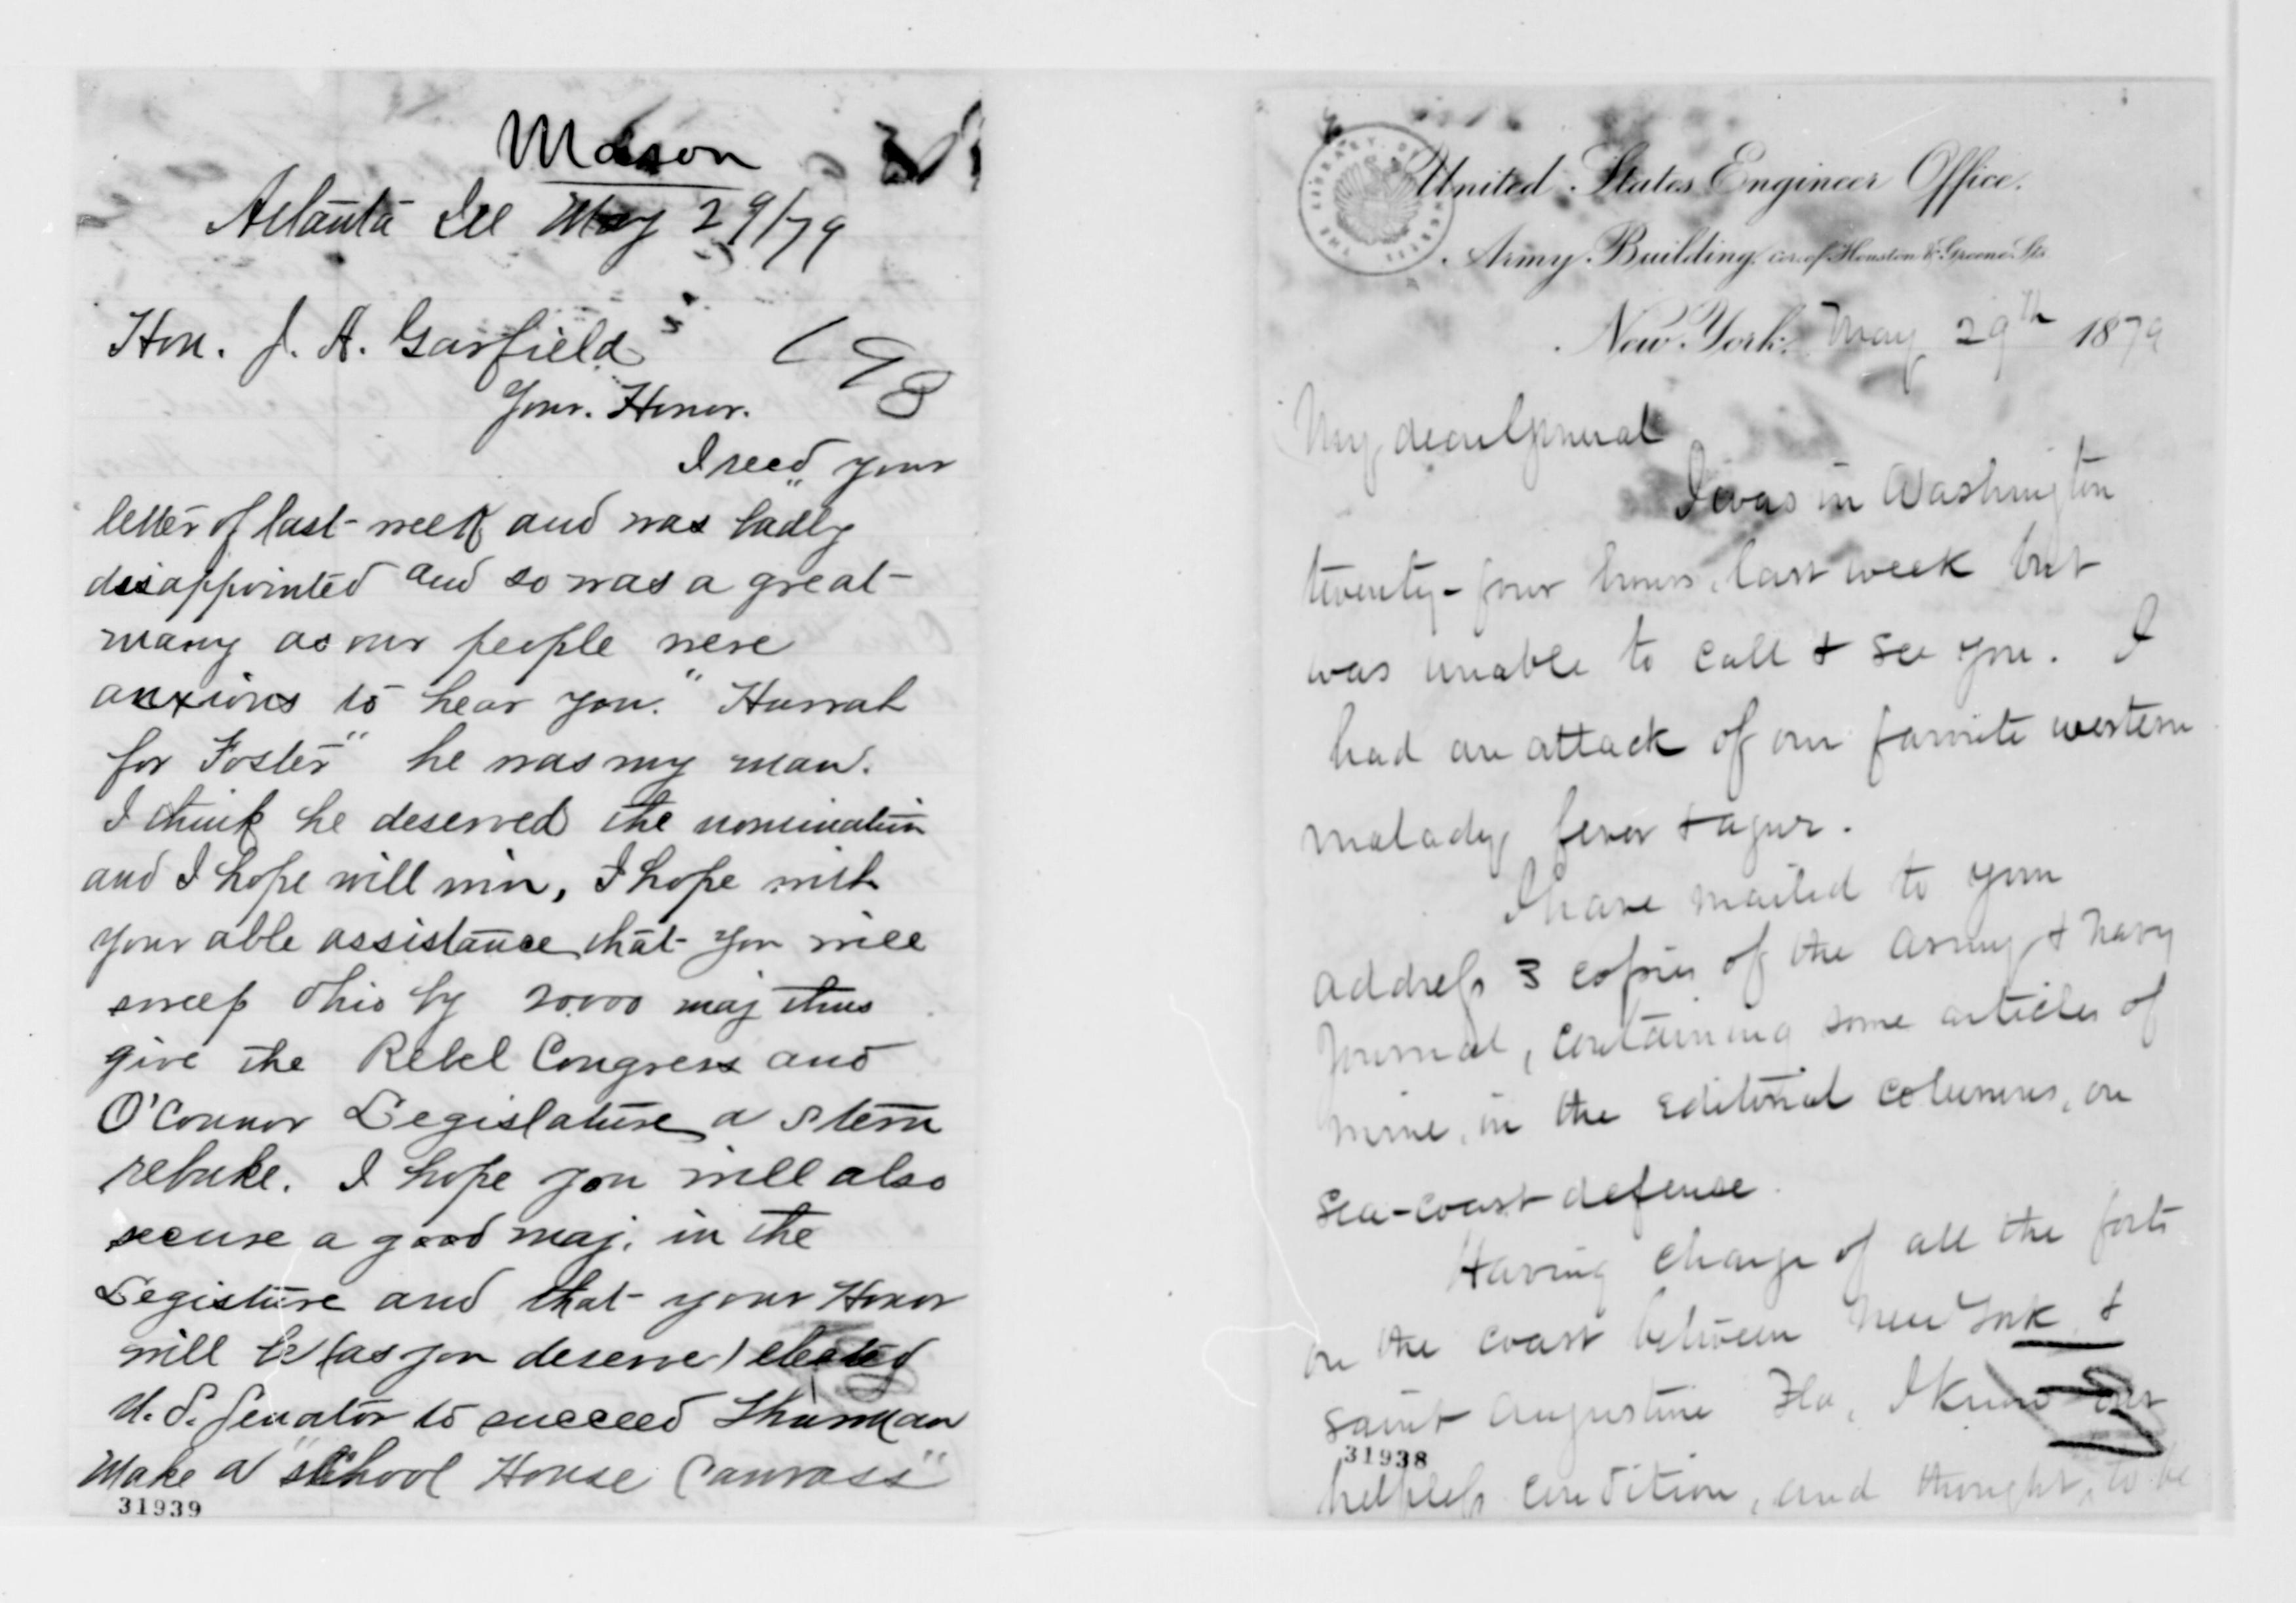 Mason
Atlanta Ill May 29/79
Hon. J. A. Garfield
Your. Honor.
I recd your
letter of last week and was badly
disappointed and so was a great
many as our people were
anxious to hear you. "Hurrah
for Foster" he was my man.
I think he deserved the nomination
and I hope will win, I hope with
your able assistance that you will
sweep Ohio by 20.000 maj thus
give the Rebel Congress and
O'Connor Legislature a stern
rebuke. I hope you will also
secure a good maj. in the
Legisture and that your Honor
will be (as you deserve) elected
U. S. Senator to succeed Thurman
Make a "school House Canvass"
31939
THE LIBRARY OF CONGRESS
United States Engineer Office.
Army Building, cor. of Houston & Greene Sts
New York, May 29th 1879
My dear General
I was in Washington
twenty-four hours, last week but
was unable to call & see you. I
had an attack of our favorite western
malady, fever & ague.
I have mailed to your
address 3 copies of the Army & Navy
Journal, containing some articles of
mine, in the editorial columns, on
Sea-coast defense.
Having charge of all the forts
on the coast between New York &
Saint Augustine Fla, I know our
31938
helpless condition, and thought, to be